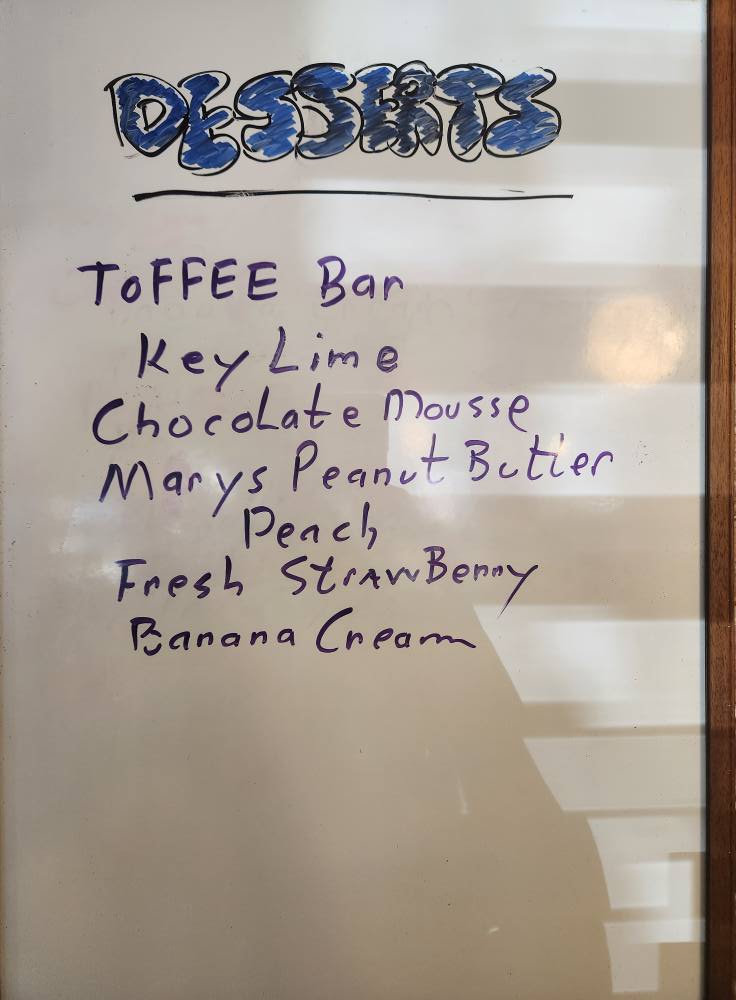 DESSERTS
ToFFEE Bar
Key Lime
Chocolate Mousse
Marys Peanut Butter
Peach
Fresh StrawBerry
Banana Cream